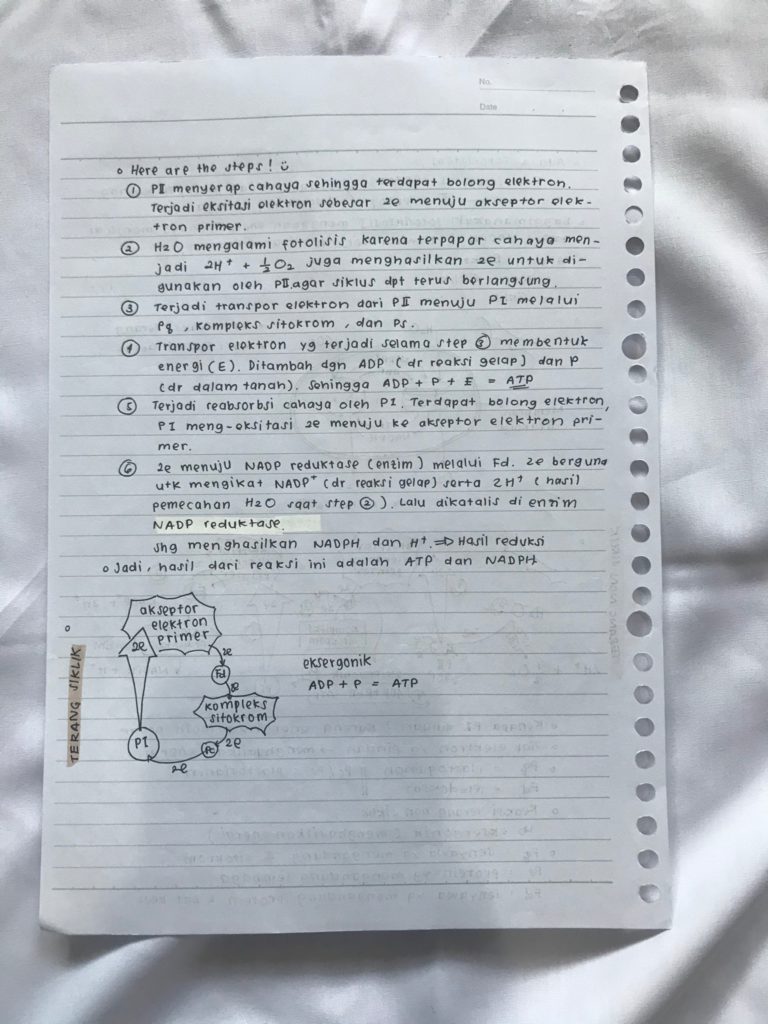 No.
Date
o Here are the steps! ☺
① PII menyerap cahaya sehingga terdapat bolong elektron.
Terjadi eksitasi elektron sebesar 2e menuju akseptor elek-
tron primer.
② H2O mengalami fotolisis karena terpapar cahaya men-
jadi 2H⁺ + ½O2 juga menghasilkan 2e untuk di-
gunakan oleh PII, agar siklus dpt terus berlangsung.
③ Terjadi transpor elektron dari PII menuju PI melalui
Pq, kompleks sitokrom, dan Ps.
④ Transpor elektron yg terjadi selama step ③ membentuk
energi (E). Ditambah dgn ADP (dr reaksi gelap) dan P
(dr dalam tanah). Sehingga ADP + P + E = ATP
⑤ Terjadi reabsorbsi cahaya oleh PI. Terdapat bolong elektron,
PI meng-eksitasi 2e menuju ke akseptor elektron pri-
mer.
⑥ 2e menuju NADP reduktase (enzim) melalui Fd. 2e berguna
utk mengikat NADP⁺ (dr reaksi gelap) serta 2H⁺ (hasil
pemecahan H2O saat step ②). Lalu dikatalis di enzim
NADP reduktase.
shg menghasilkan NADPH dan H⁺. ⇒ Hasil reduksi
o Jadi, hasil dari reaksi ini adalah ATP dan NADPH.
o
TERANG SIKLIK
akseptor
elektron
primer
2e
2e
Fd
2e
kompleks
sitokrom
2e
Pc
2e
PI
eksergonik
ADP + P = ATP